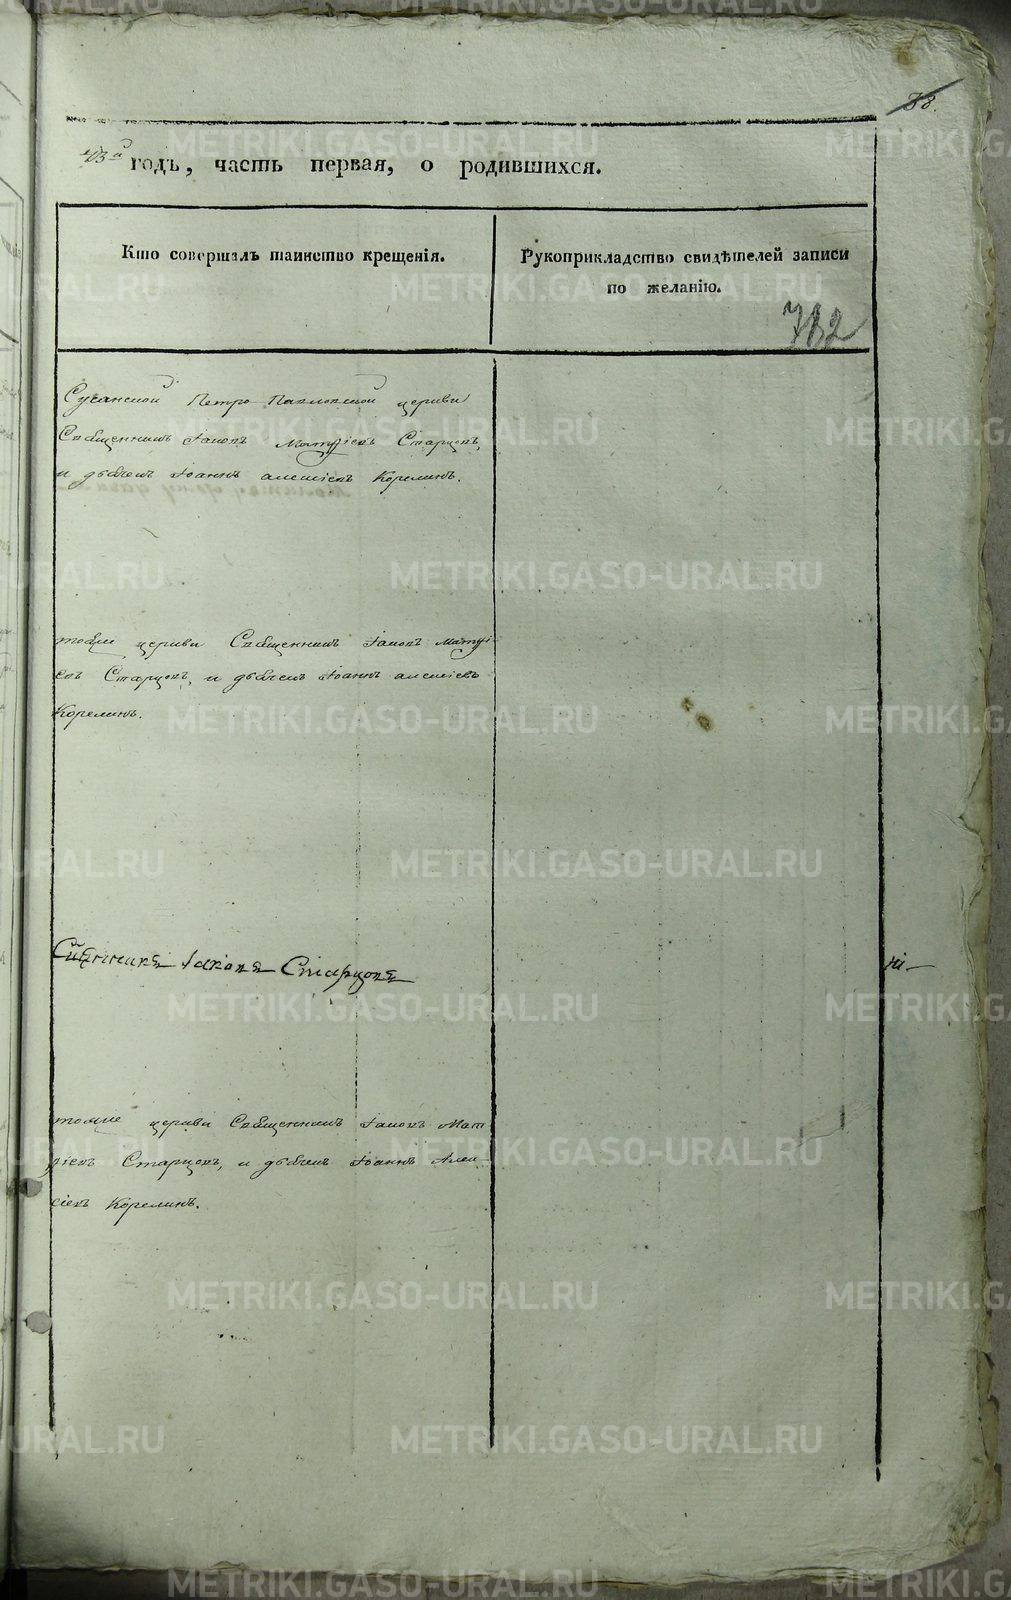 38.
43й годъ, часть первая, о родившихся.
Кто совершалъ таинство крещенія.
Рукоприкладство свидѣтелей записи
по желанію.
782
Сусанской Петро Павловской церкви
Священникъ Іаковъ Матѳіевъ Старцовъ,
и дьячекъ Іоаннъ Алексіевъ Корелинъ.
тояже церкви Священникъ Іаковъ Матѳі-
евъ Старцовъ, и дьячекъ Іоаннъ Алексіевъ
Корелинъ.
Сщенникъ Іаковъ Старцовъ
тояже церкви Священникъ Іаковъ Мат
ѳіевъ Старцовъ, и дьячекъ Іоаннъ Алек-
сіевъ Корелинъ.
METRIKI.GASO-URAL.RU